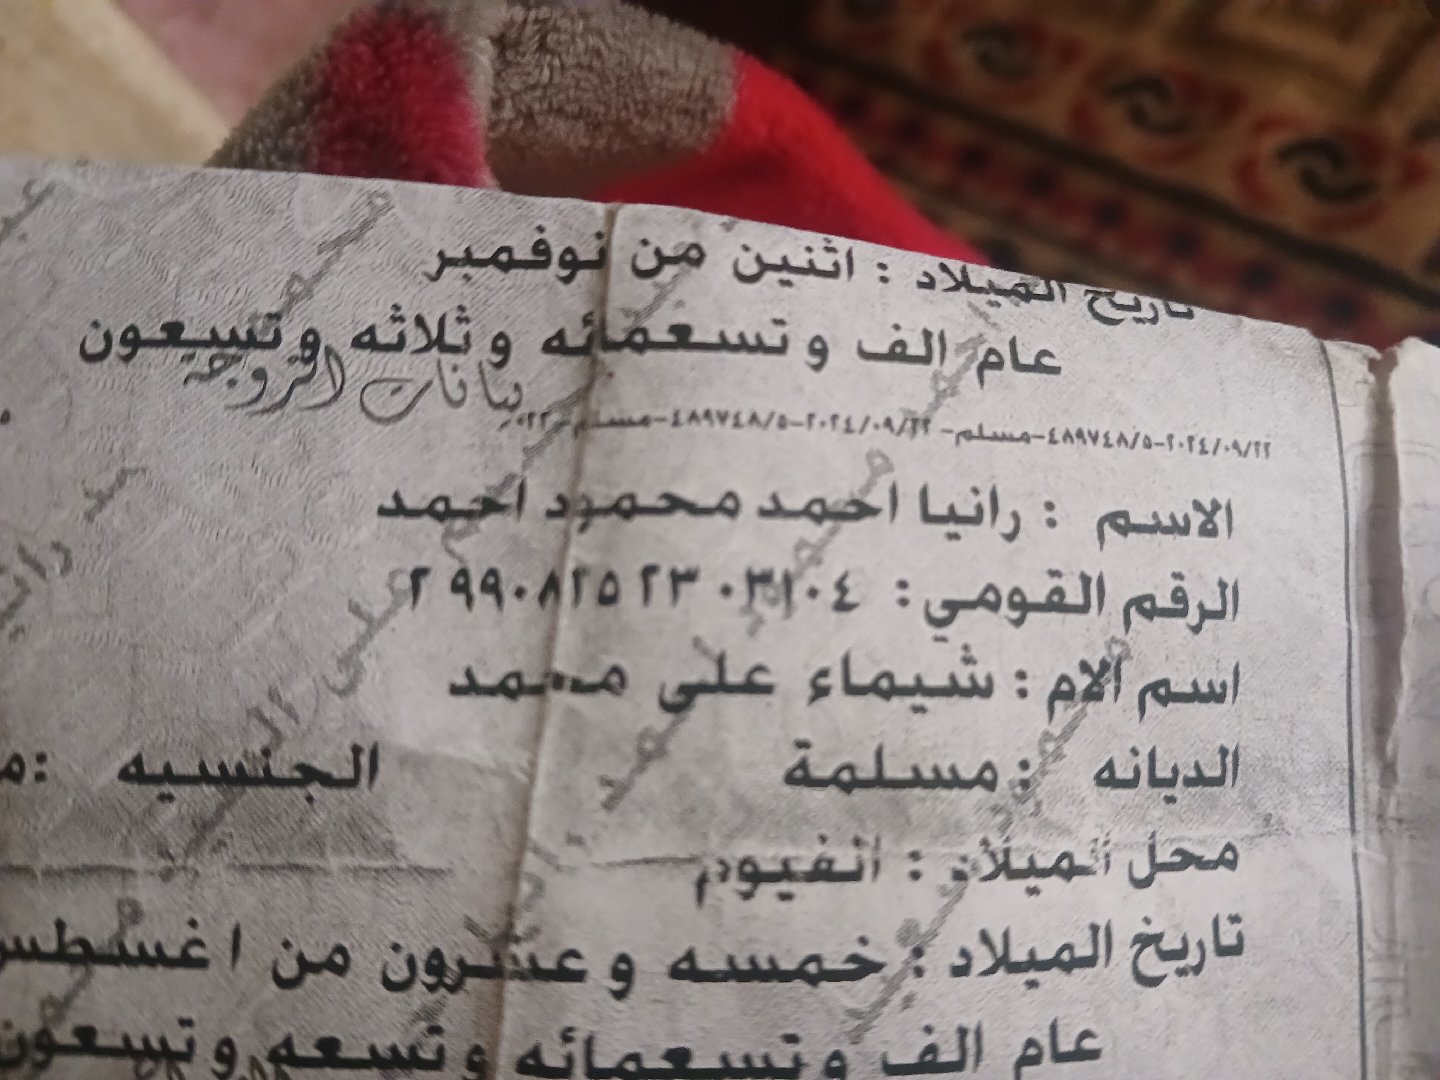 تاريخ الميلاد : اثنين من نوفمبر
عام الف وتسعمائه وثلاثه وتسعون
بيانات الزوجة
٤٨٩٧٤٨/٥-٢٠٢٤/٠٩/٢٢-مسلم-٤٨٩٧٤٨/٥-٢٠٢٤/٠٩/٢٢-مسلم
الاسم : رانيا احمد محمود احمد
الرقم القومي: ٢٩٩٠٨٢٥٢٣٠٣١٠٤
اسم الام : شيماء على محمد
الديانه : مسلمة الجنسيه :
محل الميلاد : الفيوم
تاريخ الميلاد : خمسه وعشرون من اغسطس
عام الف وتسعمائه وتسعه وتسعون